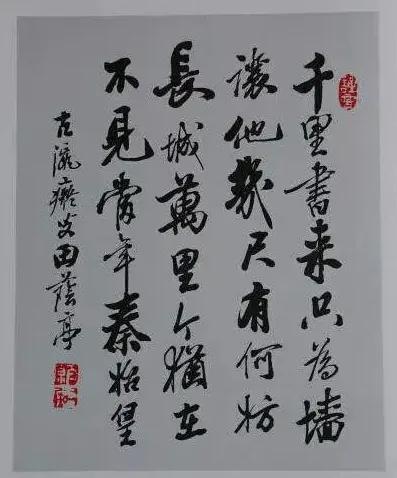 千里書来只為墻
讓他幾尺有何妨
長城萬里今猶在
不見當年秦始皇
古瀛田蔭亭